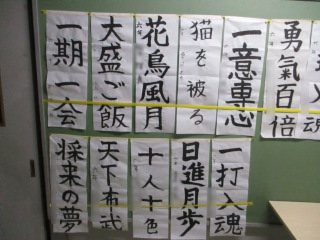 勇氣百倍
一意専心
猫を被る
花鳥風月
大盛ご飯
一期一会
一打入魂
日進月歩
十人十色
天下布武
将来の夢